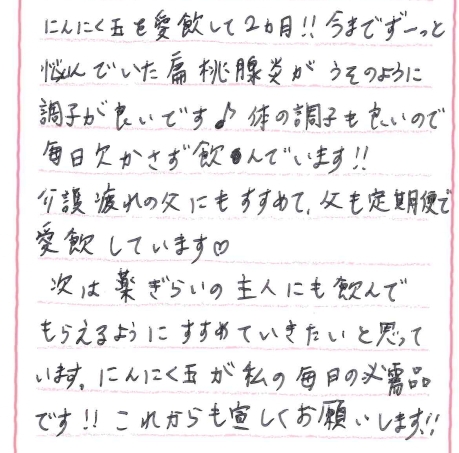 にんにく玉を愛飲して2カ月!!今までずーっと
悩んでいた扁桃腺炎がうそのように
調子が良いです♪体の調子も良いので
毎日欠かさず飲んでいます!!
介護疲れの父にもすすめて、父も定期便で
愛飲しています♡
次は薬ぎらいの主人にも飲んで
もらえるようにすすめていきたいと思って
います。にんにく玉が私の毎日の必需品
です!!これからも宜しくお願いします!!